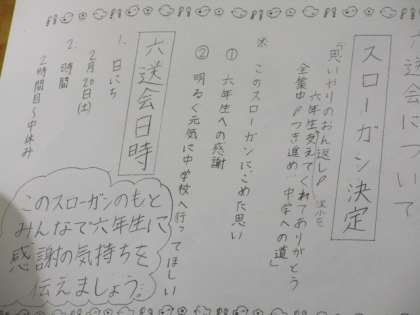 六送会について
スローガン決定
「思いやりのおん返し♪
六年生支えてくれてありがとう
全集中♪つき進め 中学への道」
※このスローガンにこめた思い
① 六年生への感謝
② 明るく元気に中学校へ行ってほしい
六送会日時
1. 日にち
2月20日(土)
2. 時間
2時間目〜中休み
このスローガンのもと
みんなで六年生に
感謝の気持ちを
伝えましょう。